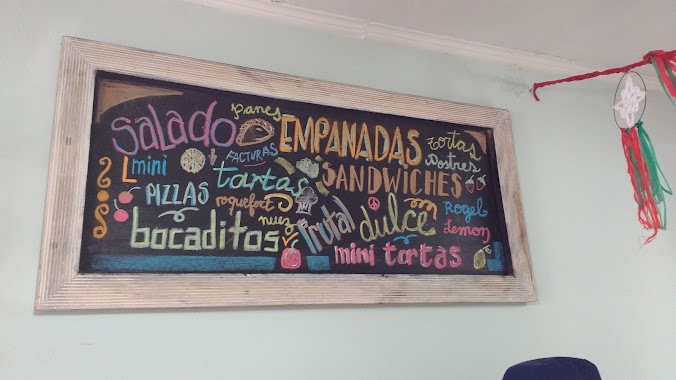 panes
Salado
EMPANADAS
Tortas
Postres
mini
FACTURAS
tartas
SANDWICHES
PIZZAS
roquefort
nuez
frutal
dulce
Rogel
Lemon
bocaditos
mini tortas